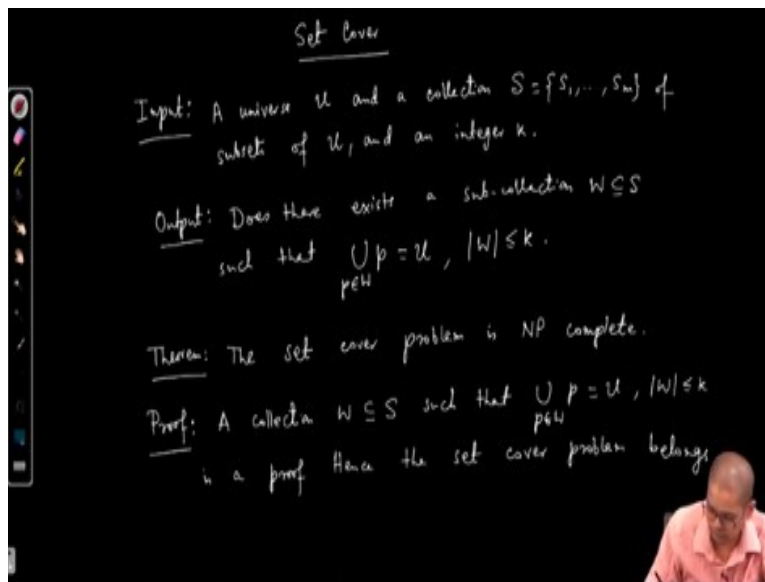 Set Cover
Input: A universe U and a collection S = {S₁, .., Sₘ} of
subsets of U, and an integer k.
Output: Does there exists a sub-collection W ⊆ S
such that ∪ p = U, |W| ≤ k.
p∈W
Theorem: The set cover problem is NP complete.
Proof: A collection W ⊆ S such that ∪ p = U, |W| ≤ k
p∈W
is a proof Hence the set cover problem belongs